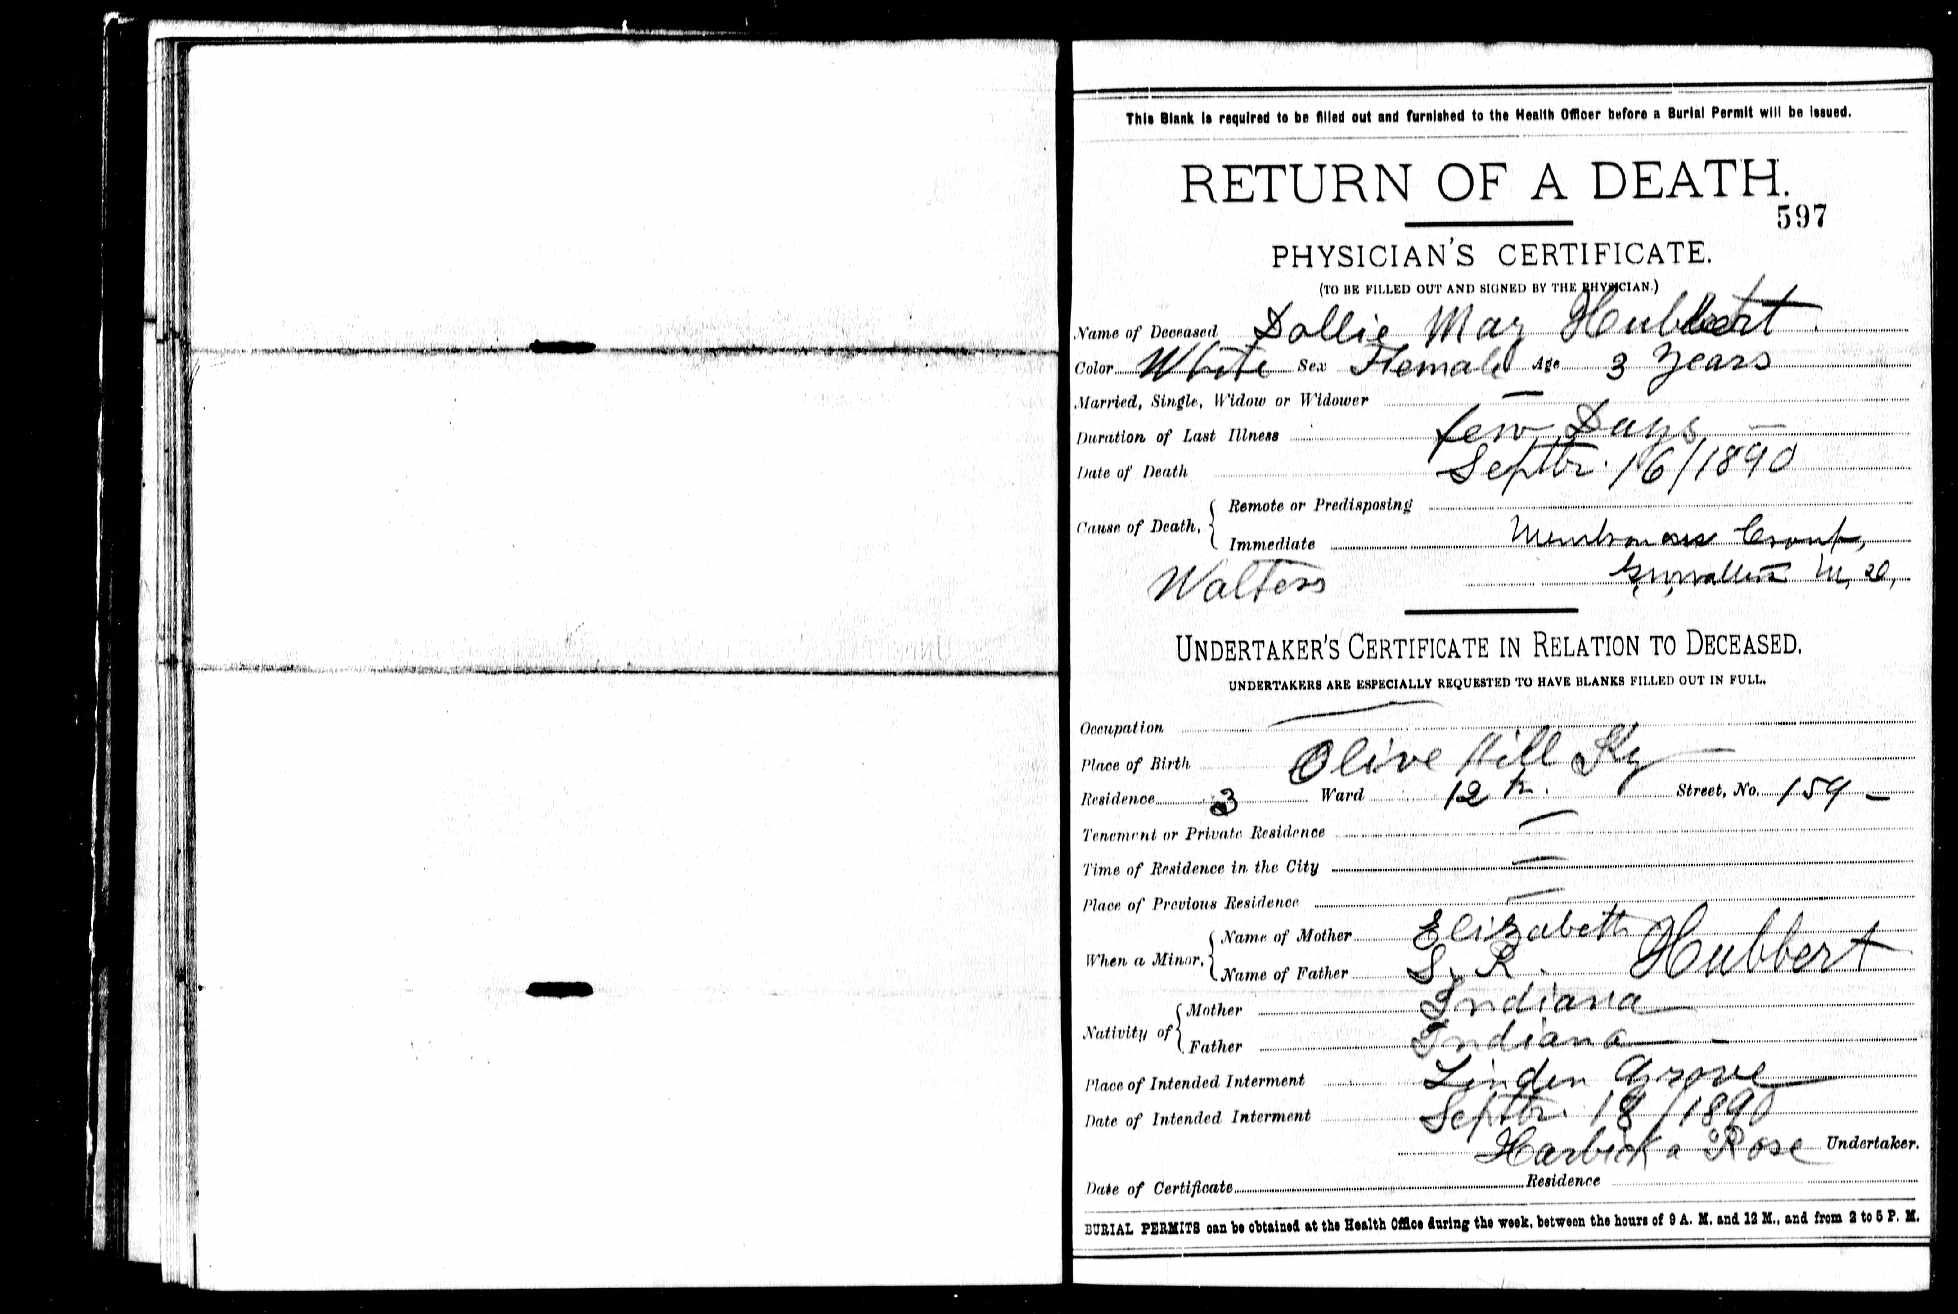 This Blank is required to be filled out and furnished to the Health Officer before a Burial Permit will be issued.
RETURN OF A DEATH.
597
PHYSICIAN'S CERTIFICATE.
(TO BE FILLED OUT AND SIGNED BY THE PHYSICIAN.)
Name of Deceased Dollie May Hubbert
Color White Sex Female Age 3 Years
Married, Single, Widow or Widower —
Duration of Last Illness few Days —
Date of Death Septbr. 16/1890
Cause of Death, { Remote or Predisposing
Immediate Membranous Croup,
Walters M.D.
UNDERTAKER'S CERTIFICATE IN RELATION TO DECEASED.
UNDERTAKERS ARE ESPECIALLY REQUESTED TO HAVE BLANKS FILLED OUT IN FULL.
Occupation —
Place of Birth Olive Hill Ky —
Residence 3 Ward 12th. Street, No. 159 —
Tenement or Private Residence —
Time of Residence in the City —
Place of Previous Residence —
When a Minor, { Name of Mother Elizabeth Hubbert
Name of Father S. R.
Nativity of { Mother Indiana
Father Indiana —
Place of Intended Interment Linden Grove
Date of Intended Interment Septbr. 18/1890
Rose Undertaker.
Date of Certificate Residence
BURIAL PERMITS can be obtained at the Health Office during the week, between the hours of 9 A. M. and 12 M., and from 2 to 5 P. M.